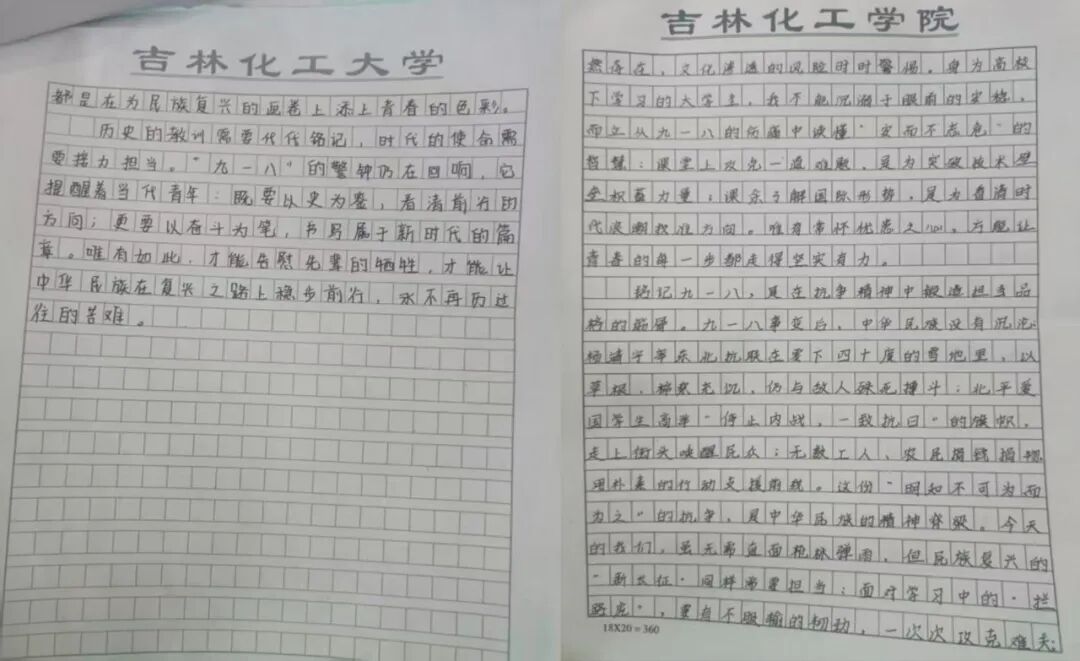 吉林化工大学
都是在为民族复兴的画卷上添上青春的色彩。
历史的教训需要代代铭记，时代的使命需
要接力担当。“九一八”的警钟仍在回响，它
提醒着当代青年：既要以史为鉴，看清前行的
方向；更要以奋斗为笔，书写属于新时代的篇
章。唯有如此，才能告慰先辈的牺牲，才能让
中华民族在复兴之路上稳步前行，永不再历过
往的苦难。
吉林化工学院
然存在，文化渗透的风险时时警惕。身为高校
下学习的大学生，我不能沉湎于眼前的安稳，
而应从九一八的伤痛中读懂“安而不忘危”的
哲慧：课堂上攻克一道难题，是为突破技术壁
垒积蓄力量；课余了解国际形势，是为看清时
代浪潮找准方向。唯有常怀忧患之心，方能让
青春的每一步都走得坚实有力。
铭记九一八，是在抗争精神中锻造担当品
格的筋骨。九一八事变后，中华民族没有沉沦：
杨靖宇率东北抗联在零下四十度的雪地里，以
草根、棉絮充饥，仍与敌人殊死搏斗；北平爱
国学生高举“停止内战，一致抗日”的旗帜，
走上街头唤醒民众；无数工人、农民捐钱捐物
用朴素的行动支援前线。这份“明知不可为而
为之”的抗争，是中华民族的精神脊梁。今天
的我们，虽无需直面枪林弹雨，但民族复兴的
“新长征”同样需要担当：面对学习中的“拦
路虎”，要有不服输的韧劲，一次次攻克难关；
18X20=360